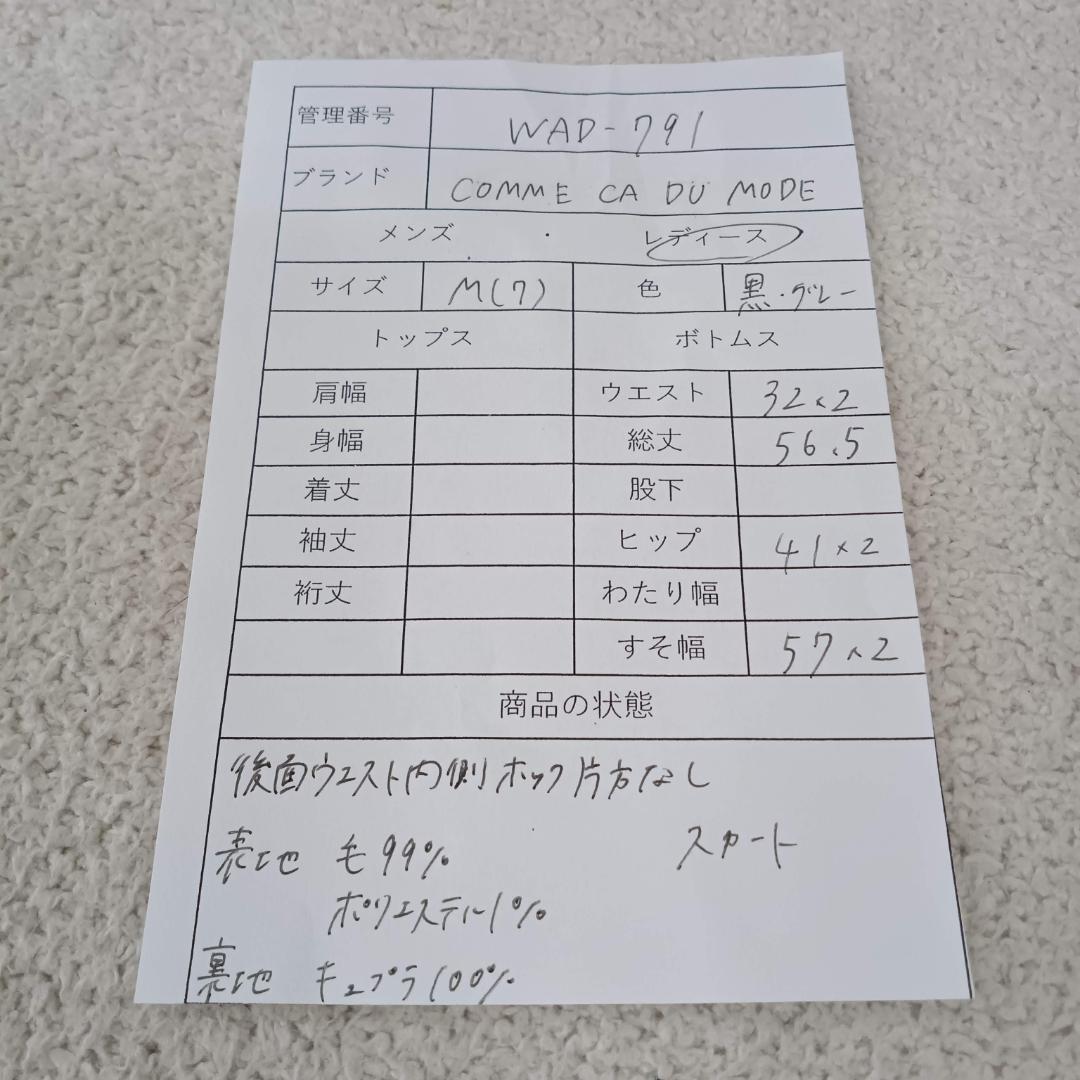 管理番号 WAD-791
ブランド COMME CA DU MODE
メンズ ・ レディース
サイズ M(7) 色 黒・グレー
トップス ボトムス
肩幅 ウエスト 32×2
身幅 総丈 56.5
着丈 股下
袖丈 ヒップ 41×2
裄丈 わたり幅
すそ幅 57×2
商品の状態
後面ウエスト内側ホック片方なし
表地 毛99% スカート
ポリエステル1%
裏地 キュプラ100%